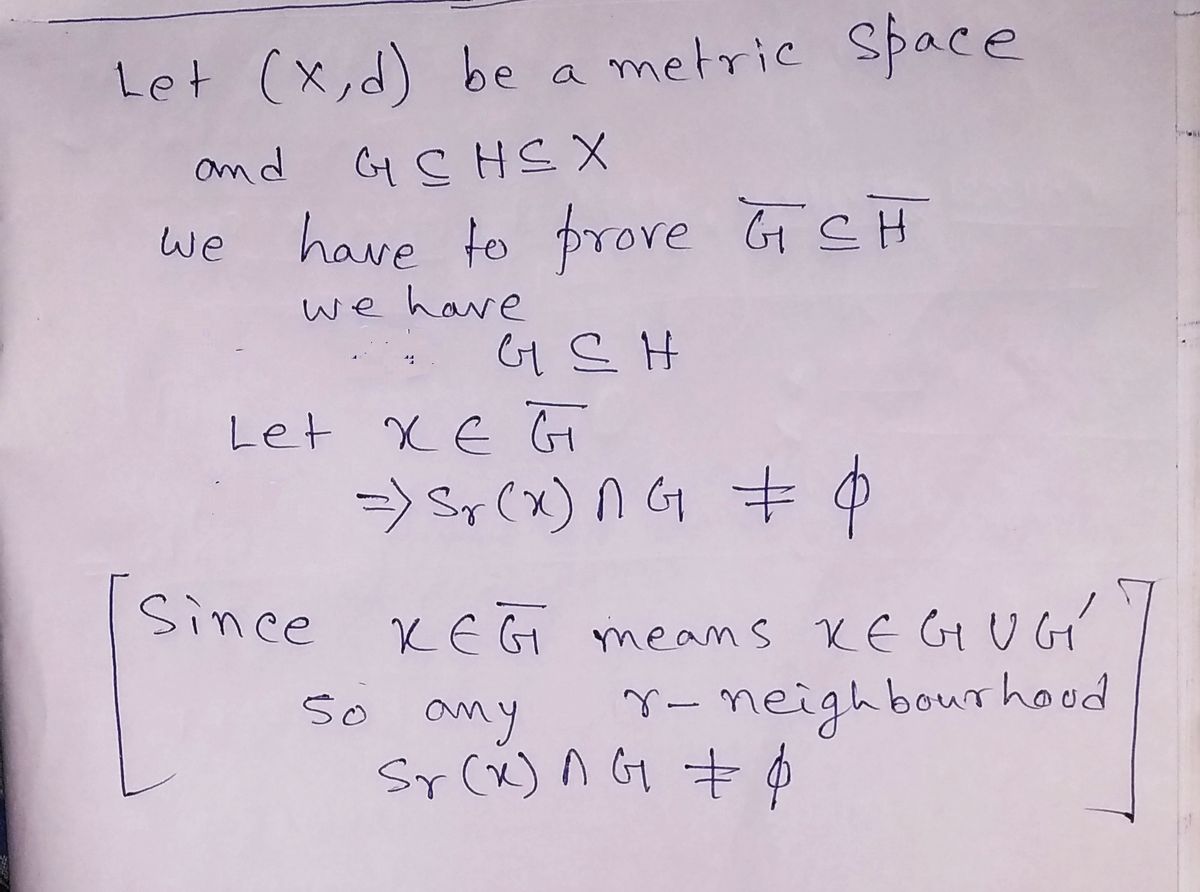 Let (X,d) be a metric space
and G ⊆ H ⊆ X
we have to prove G̅ ⊆ H̅
we have
G ⊆ H
Let x ∈ G̅
⇒ Sr(x) ∩ G ≠ ϕ
[Since x ∈ G̅ means x ∈ G ∪ G′
so any r-neighbourhood
Sr(x) ∩ G ≠ ϕ]